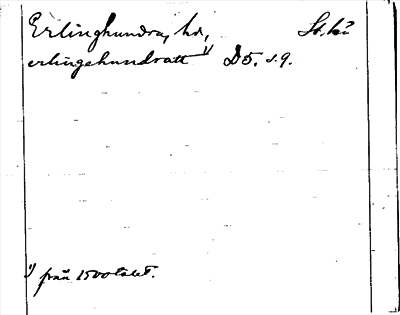 Erlinghundra, hd, St. kü
erlingehundratt 1) D5. s. 9.
1) från 1500talet.